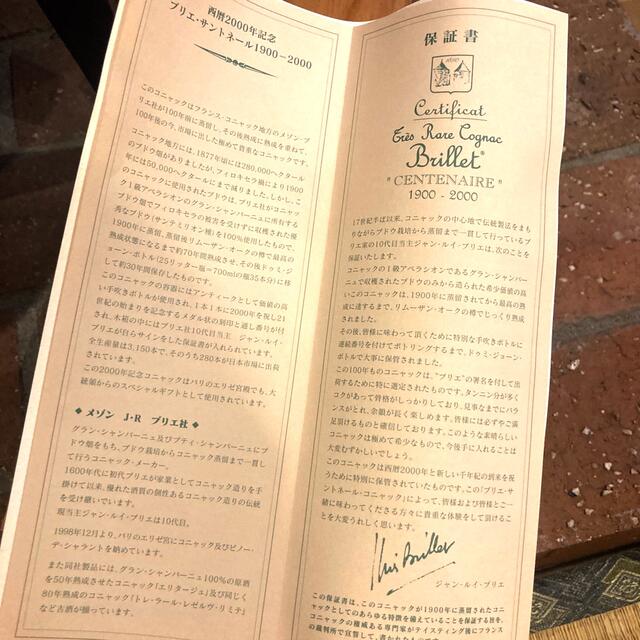 西暦2000年記念
ブリエ・サントネール1900−2000
このコニャックはフランス・コニャック地方のメゾン・ブ
リエ社が100年前に蒸留し、その後熟成に熟成を重ねて、
100年後の今、市場に出した極めて貴重なコニャックです。
コニャック地方には、1877年頃には280,000ヘクタール
のブドウ畑がありましたが、フィロキセラ禍により1900
年には50,000ヘクタールにまで減りました。しかし、こ
のコニャックに使用されたブドウは、ブリエ社がコニャッ
ク1級アペラシオンのグラン・シャンパーニュに所有する
ブドウ畑でフィロキセラの被害を受けずに収穫された優
秀なブドウ(サンテミリオン種)を100%使用したもので、
1900年に蒸留、蒸留後リムーザン・オークの樽で最高の
熟成状態になるまで約70年熟成させ、その後ドゥミ・ジ
ョーン・ボトル(25リッター瓶=700mlの瓶35本分)に移
して約30年間保存したものです。
このコニャックの容器にはアンティークとして価値の高
い手吹きボトルが使用され、1本1本に2000年を祝し21
世紀の始まりを記念するメダル状の刻印と通し番号が付
き、木箱の中にはブリエ社10代目当主　ジャン・ルイ・
ブリエが自らサインをした保証書が入れられています。
全生産量は3,150本で、そのうち280本が日本市場に出荷
されています。
この2000年記念コニャックはパリのエリゼ宮殿でも、大
統領からのスペシャルギフトとして使用されています。
◆ メゾン　J・R　ブリエ社 ◆
グラン・シャンパーニュ及びプティ・シャンパーニュにブ
ドウ畑をもち、ブドウ栽培からコニャック蒸留まで一貫し
て行うコニャック・メーカー。
1600年代に初代ブリエが家業としてコニャック造りを手
掛けて以来、優れた酒質の個性あるコニャック造りの伝統
を受け継いでいます。
現当主ジャン・ルイ・ブリエは10代目。
1998年12月より、パリのエリゼ宮にコニャック及びピノー・
デ・シャラントを納めています。
また同社製品には、グラン・シャンパーニュ100%の原酒
を50年熟成させたコニャック「エリタージュ」及び同じく
80年熟成のコニャック「トレ・ラール・レゼルヴ・リミテ」
など古酒が揃っています。
保証書
Certificat
Très Rare Cognac
Brillet
"CENTENAIRE"
1900 - 2000
17世紀半ば以来、コニャックの中心地で伝統製法をまも
りながらブドウ栽培から蒸留まで一貫して行っているブ
リエ家の10代目当主ジャン・ルイ・ブリエは、次のことを
保証いたします。
コニャックの1級アペラシオンであるグラン・シャンパー
ニュで収穫されたブドウのみから造られた希少価値の高
いこのコニャックは、1900年に蒸留されてから最高の熟
成に達するまで、リムーザン・オークの樽でじっくり熟成
されました。
その後、皆様に味わって頂くために特別な手吹きボトルに
連続番号を付けてボトリングするまで、ドゥミ・ジョーン・
ボトルで大事に保管されました。
この100年ものコニャックは、"ブリエ"の署名を付して出
荷するために特に選定されたものです。タンニン分が多く
コクがあって骨格がしっかりしており、見事なまでにバラ
ンスがとれ、余韻が長く楽しめます。皆様には必ずやご満
足頂けるものと確信しております。このような素晴らしい
コニャックは極めて希少なもので、今後手に入れることは
大変むずかしいでしょう。
このコニャックは西暦2000年と新しい千年紀の到来を祝
うために特別に保管されていたものです。この「ブリエ・サ
ントネール・コニャック」によって、皆様および皆様とご一
緒に味わってくださる方々に貴重な体験をして頂けるこ
とを大変うれしく思います。
ジャン・ルイ・ブリエ
この保証書は、このコニャックが1900年に蒸留されたコニ
ャックとしてのあらゆる特徴を備えていることを保証する旨を、
コニャックの権威ある専門家がテイスティング後にフランス
の裁判所で宣誓して、書かれたものです。